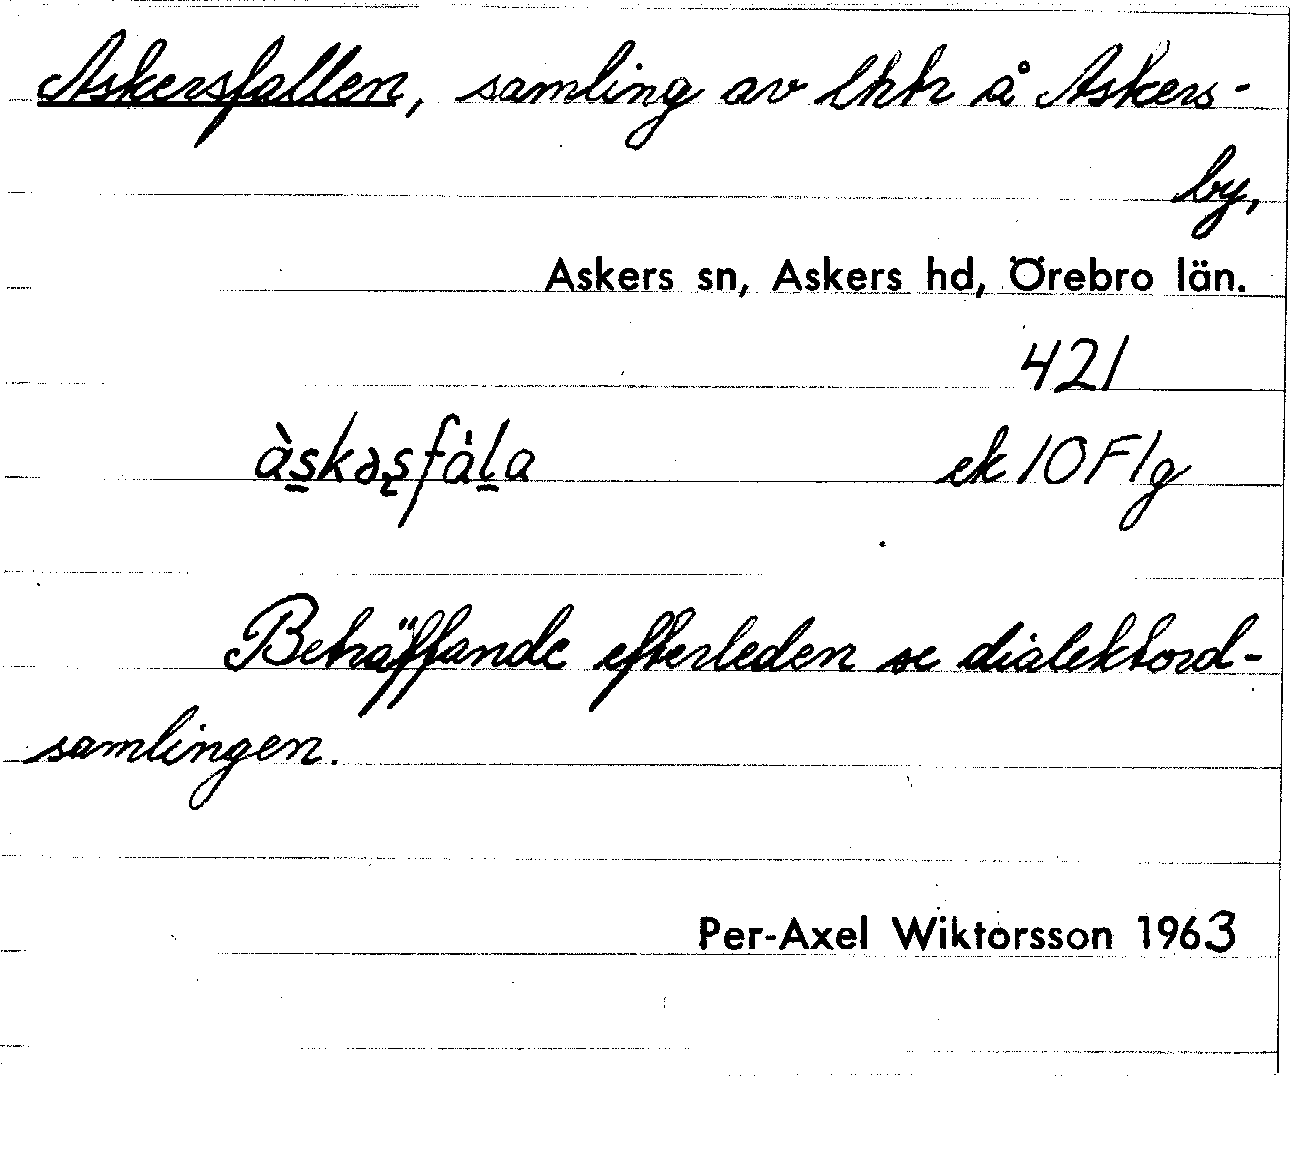 Askersfallen, samling av lhtr å Askers-
by,
Askers sn, Askers hd, Örebro län.
421
àskəʂfàla
ek 10F1g
Beträffande efterleden se dialektord-
samlingen.
Per-Axel Wiktorsson 1963